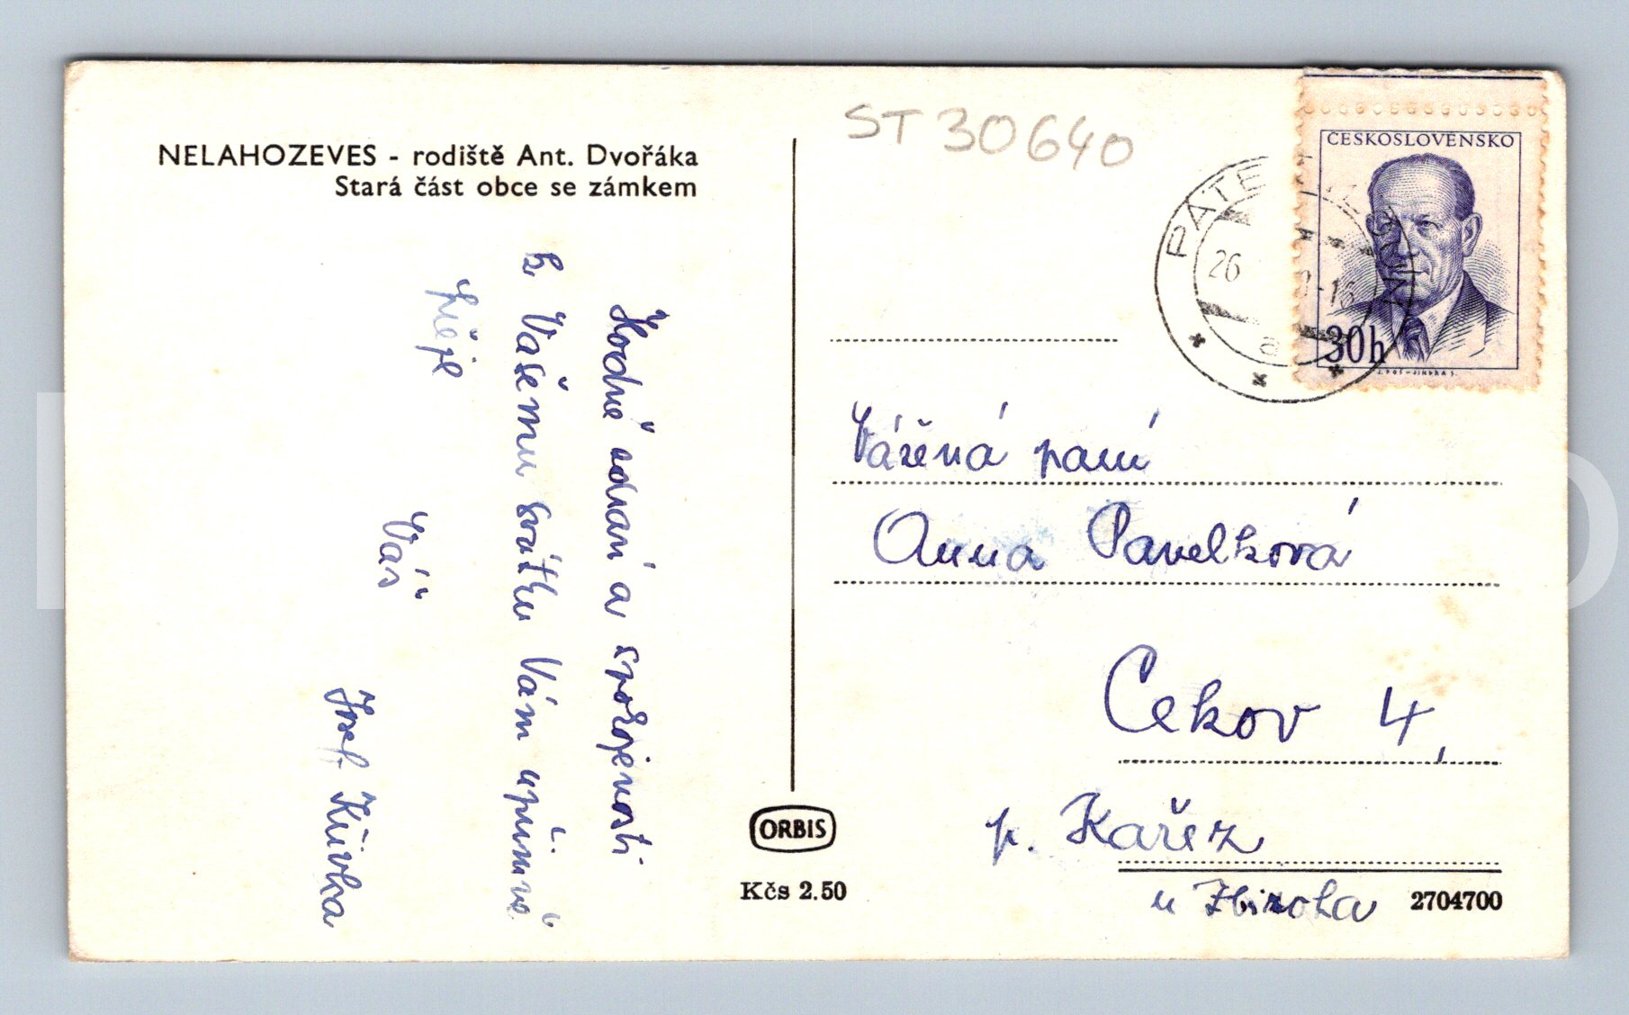 NELAHOZEVES - rodiště Ant. Dvořáka
Stará část obce se zámkem
Hodně zdraví a spokojenosti
k Vašemu svátku Vám upřímně
přeje
Váš
Josef
ST 30640
ČESKOSLOVENSKO
30h
PÁTE
26
-16
a
Vážená paní
Anna Pavelková
Cekov 4,
p. Kařez
u Zbiroha
ORBIS
Kčs 2.50
2704700